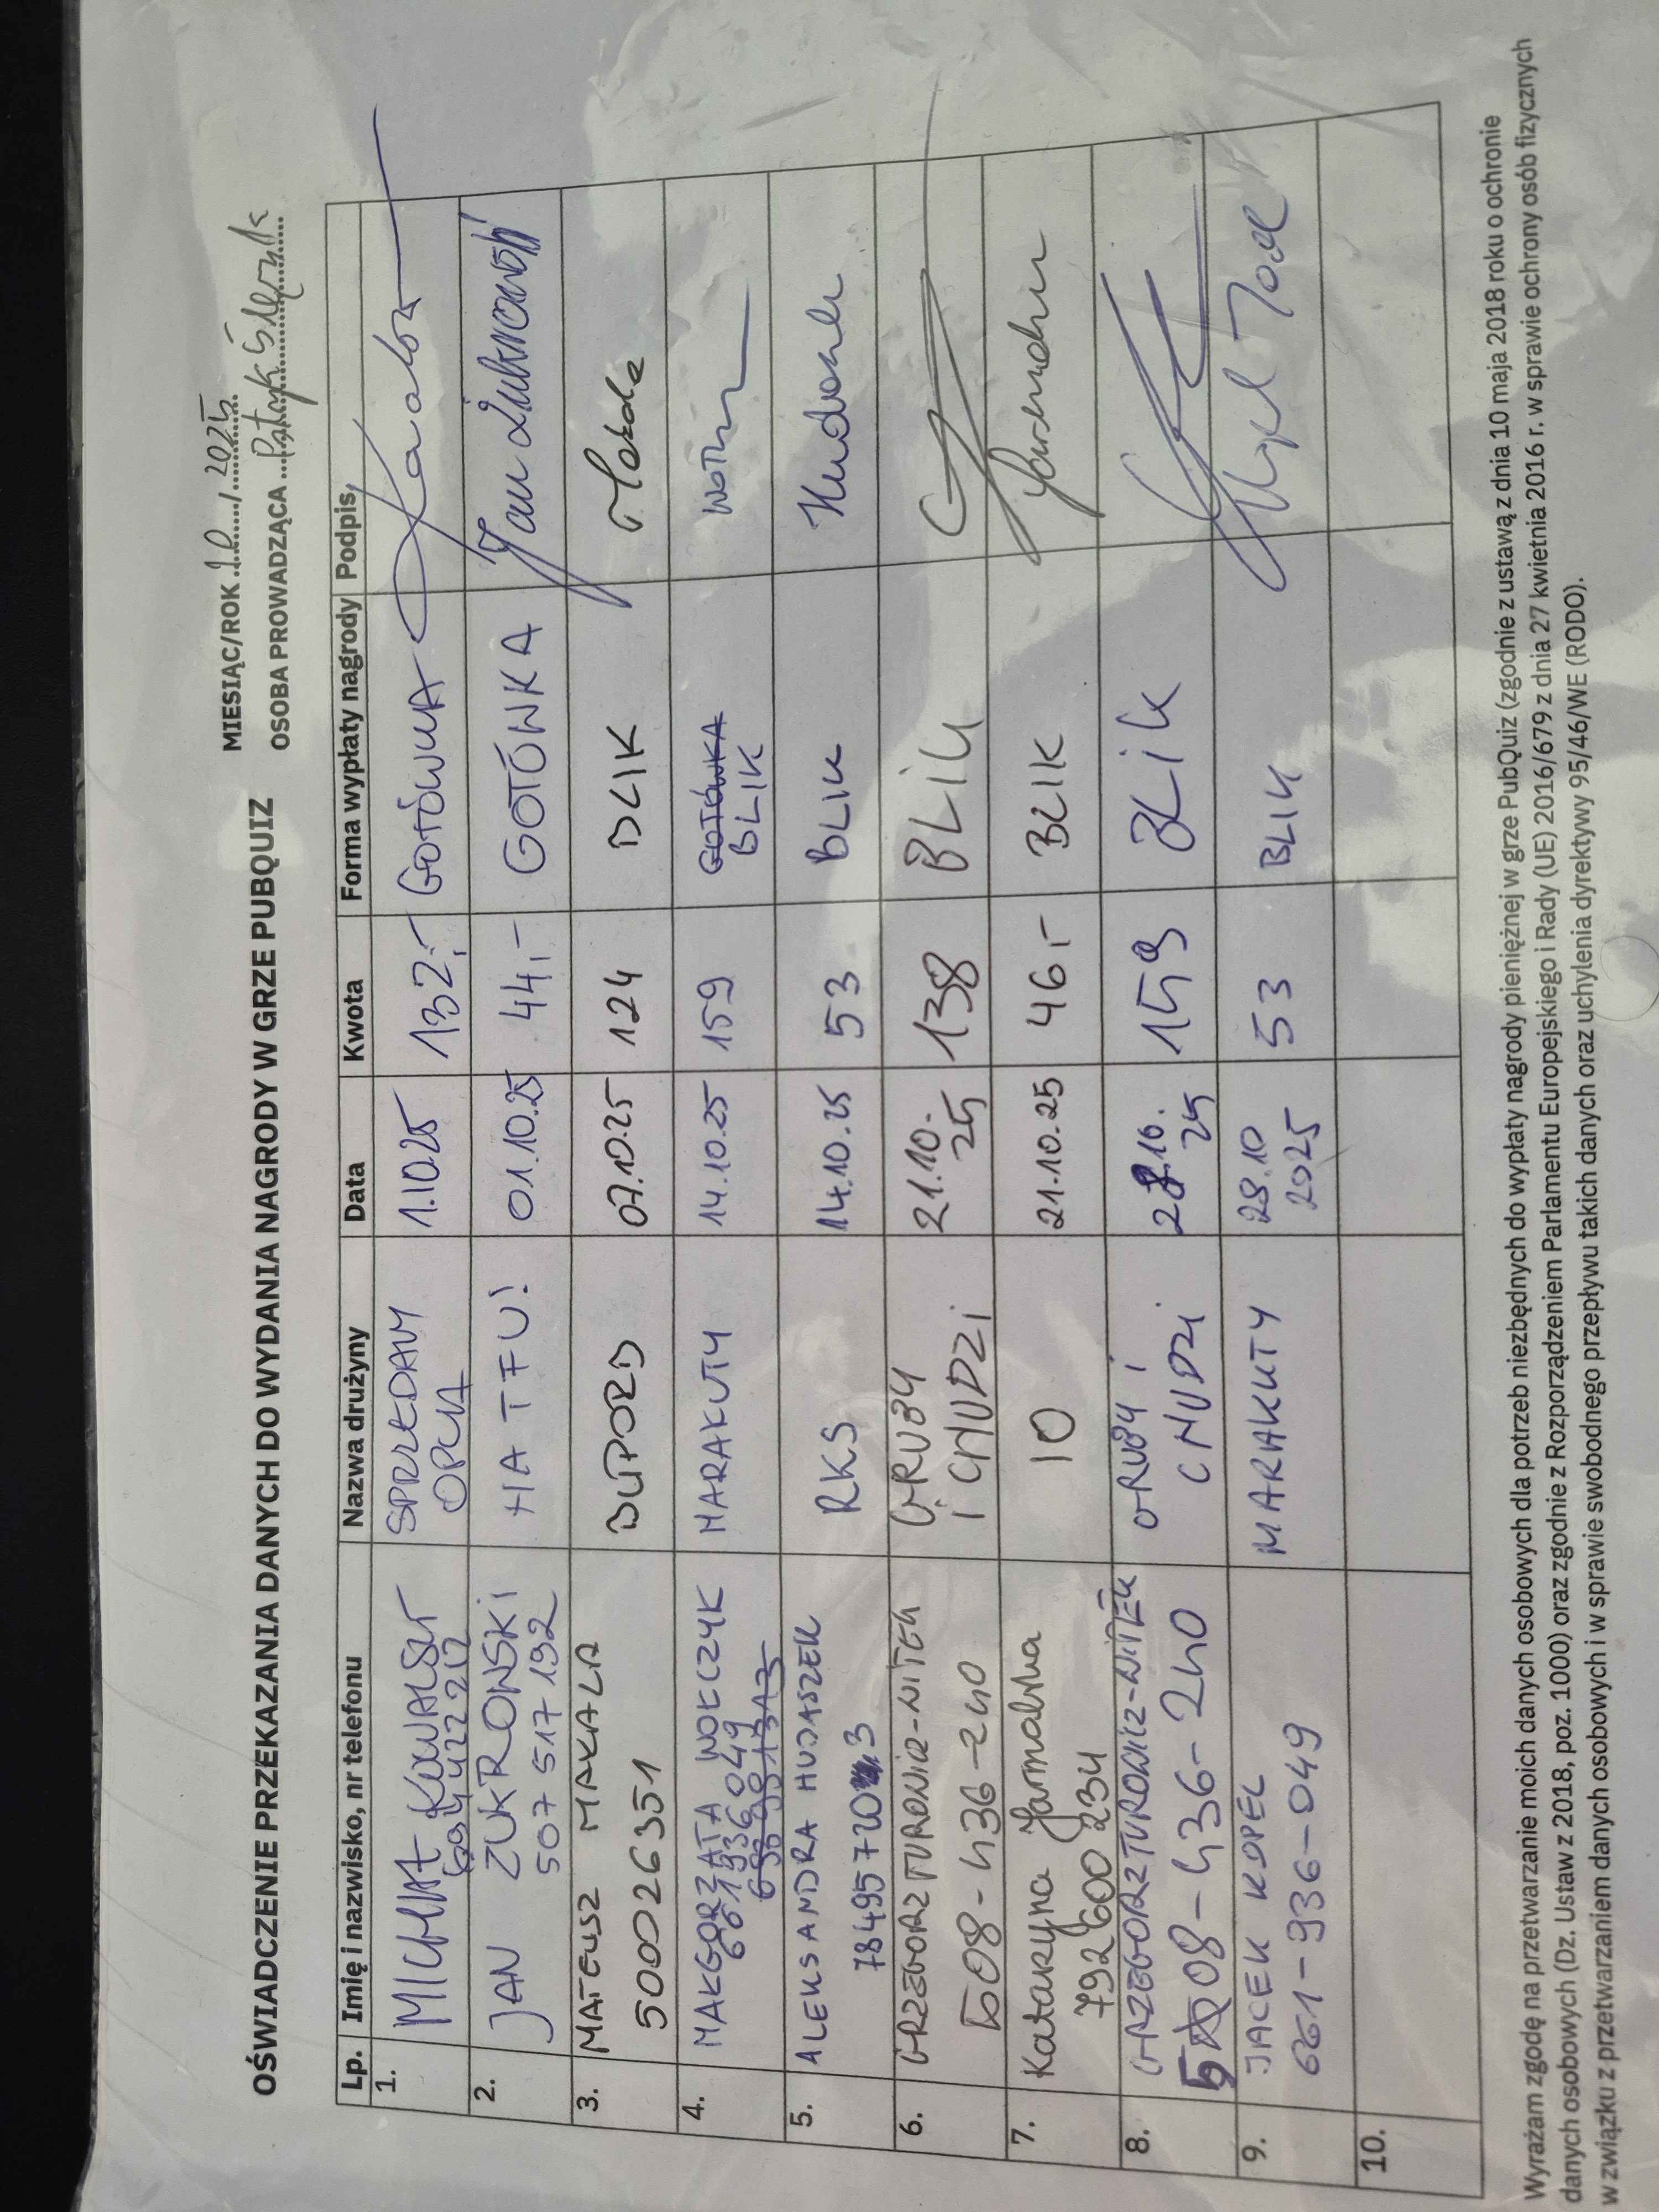 OŚWIADCZENIE PRZEKAZANIA DANYCH DO WYDANIA NAGRODY W GRZE PUBQUIZ
MIESIĄC/ROK 10 / 2025
OSOBA PROWADZĄCA Patryk
Lp. Imię i nazwisko, nr telefonu Nazwa drużyny Data Kwota Forma wypłaty nagrody Podpis
1. MICHAŁ KOWALSKI SPRZEDAM OPLA 1.10.25 132,- GOTÓWKA
2. JAN ŻUKROWSKI 507 517 192 HA TFU! 01.10.25 44,- GOTÓWKA Jan Żukrowski
3. MATEUSZ MAKAŁA 500026351 07.10.25 124 BLIK
4. MAŁGORZATA WOŁCZYK 661 936 049 MARAKUTY 14.10.25 159 GOTÓWKA BLIK
5. ALEKSANDRA HUDASZEK RKS 14.10.25 53 BLIK
6. GRZEGORZ TUROWICZ-WITEK 508-436-240 GRUBY I CHUDZI 21.10.25 138 BLIK
7. Katarzyna Jarmolska 792 600 234 IO 21.10.25 46,- BLIK
8. GRZEGORZ TUROWICZ-WITEK 508-436-240 GRUBY I CHUDZI 28.10.25 159 BLIK
9. JACEK KOPEĆ 661-936-049 MARAKUTY 28.10 2025 53 BLIK
10.
Wyrażam zgodę na przetwarzanie moich danych osobowych dla potrzeb niezbędnych do wypłaty nagrody pieniężnej w grze PubQuiz (zgodnie z ustawą z dnia 10 maja 2018 roku o ochronie
danych osobowych (Dz. Ustaw z 2018, poz. 1000) oraz zgodnie z Rozporządzeniem Parlamentu Europejskiego i Rady (UE) 2016/679 z dnia 27 kwietnia 2016 r. w sprawie ochrony osób fizycznych
w związku z przetwarzaniem danych osobowych i w sprawie swobodnego przepływu takich danych oraz uchylenia dyrektywy 95/46/WE (RODO).